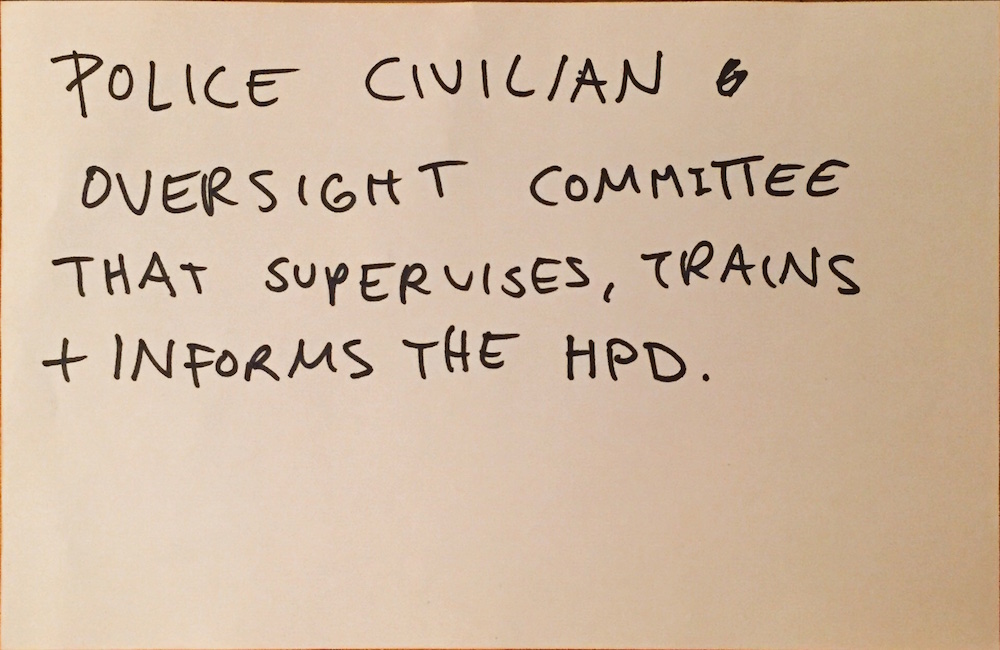 POLICE CIVILIAN
OVERSIGHT COMMITTEE
THAT SUPERVISES, TRAINS
+ INFORMS THE HPD.